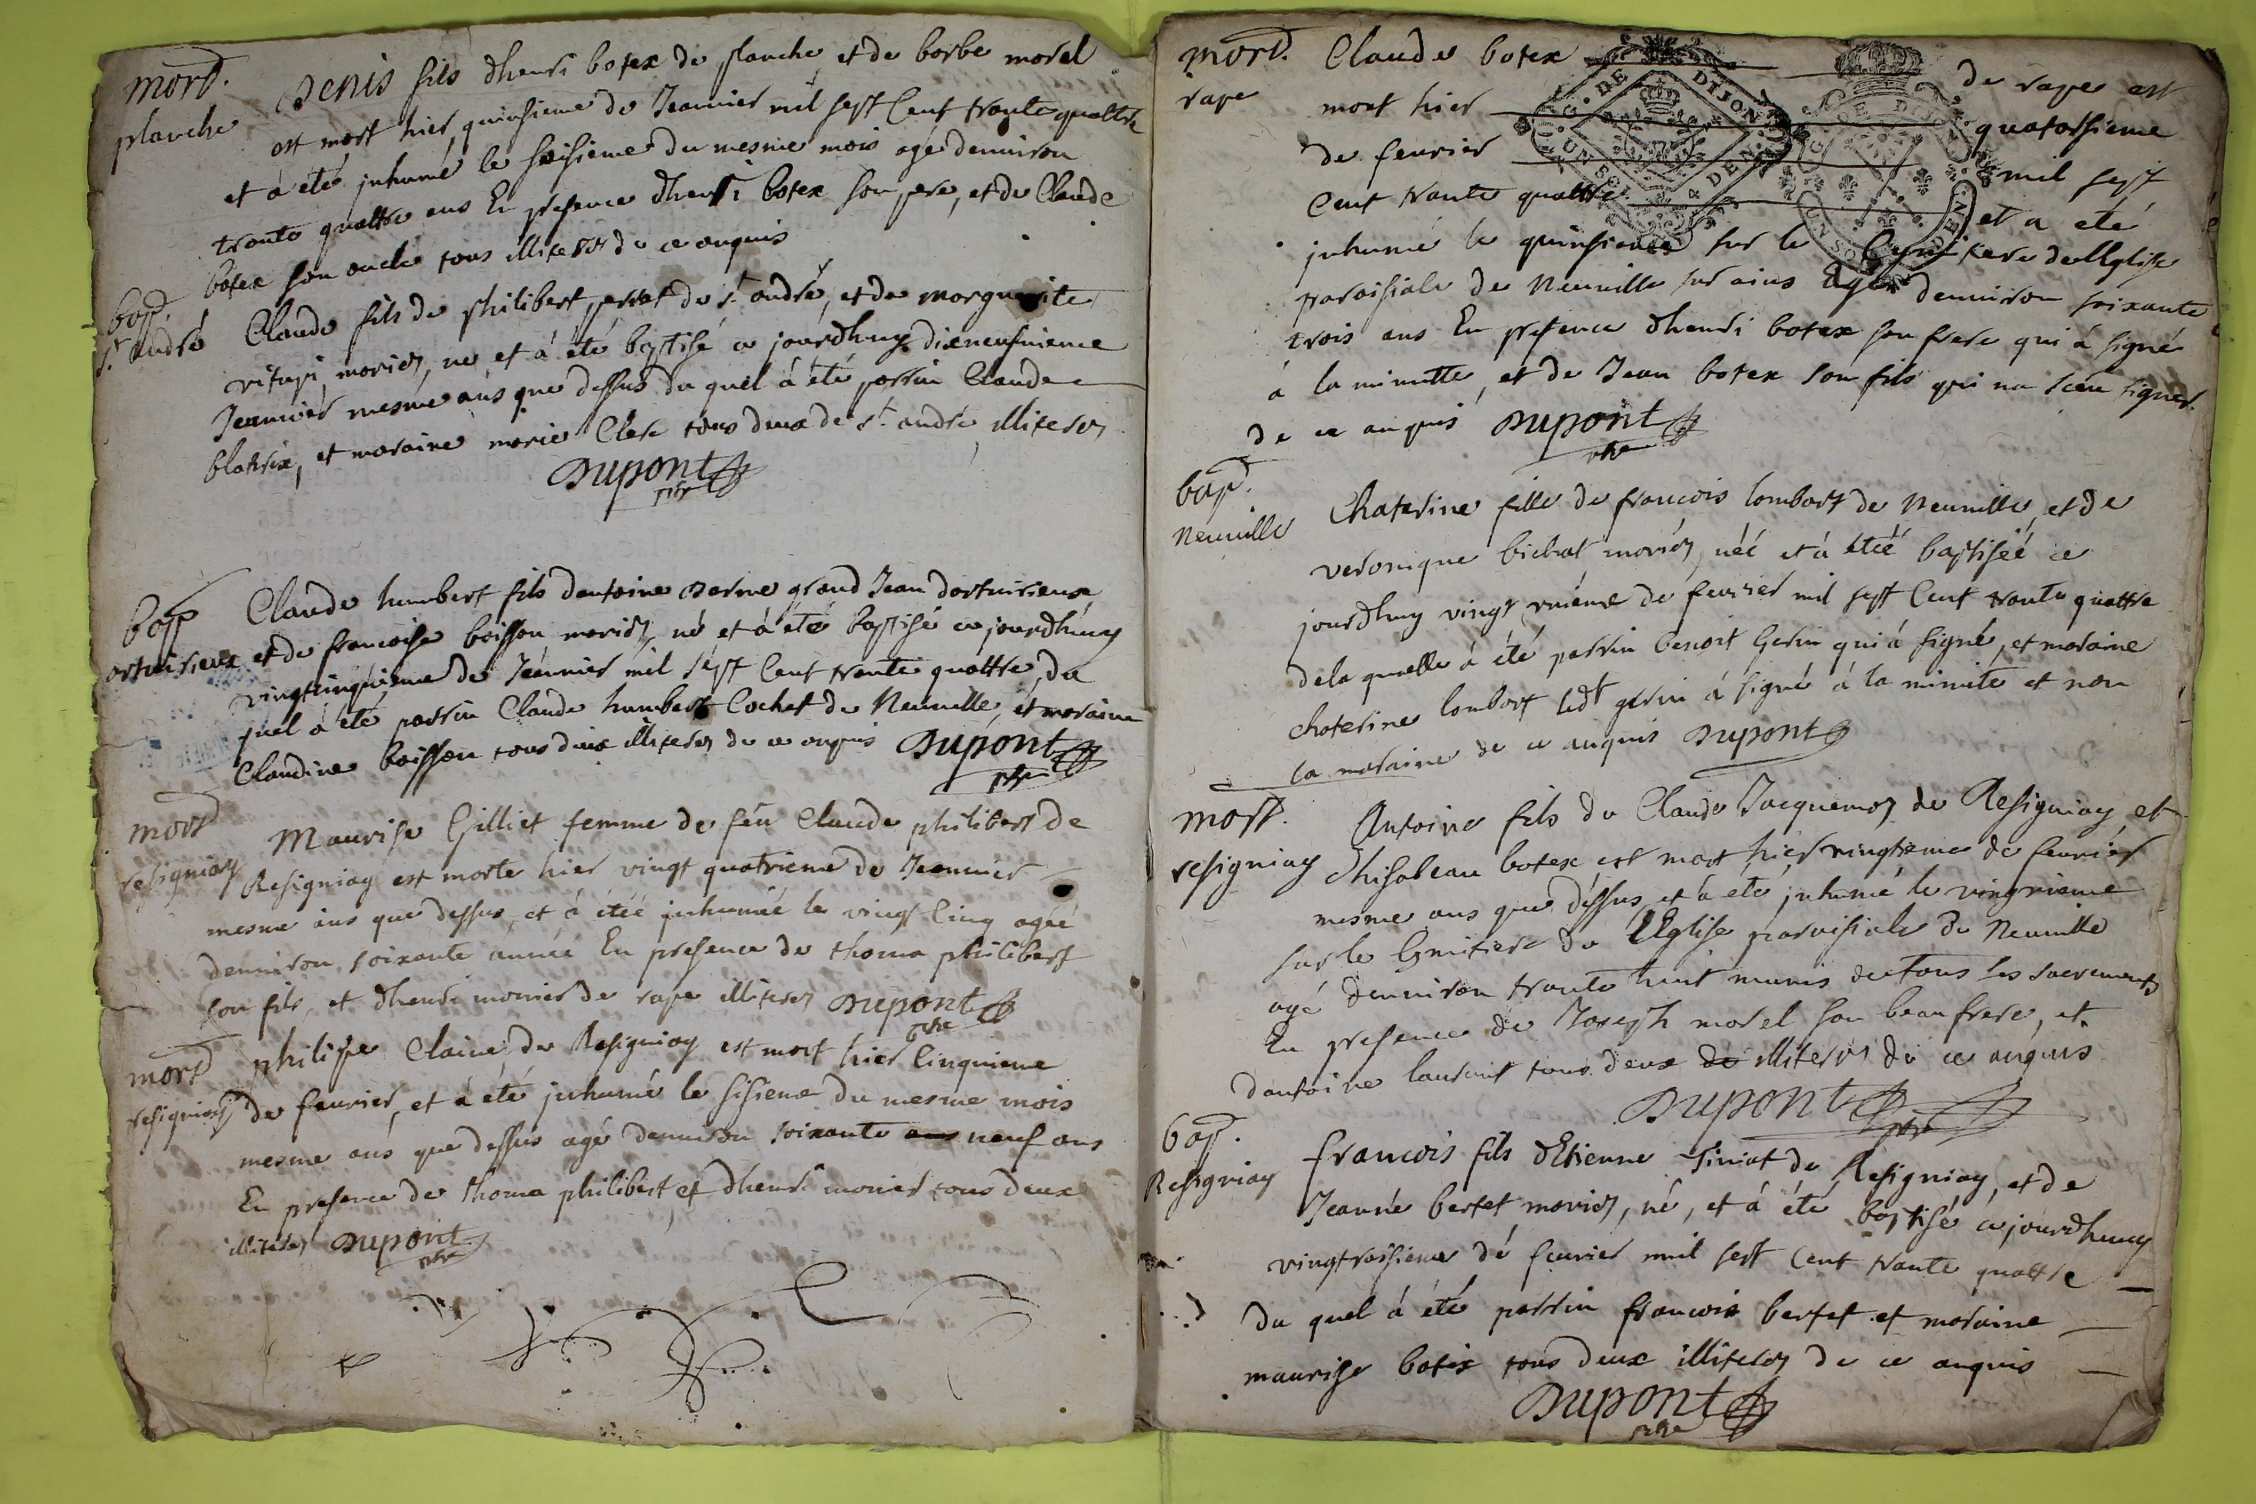 mort.
planche
Denis fils dhenri botex de planche et de barbe morel
est mort hier quinsieme de Jeanvier mil sept Cent trante quattre
et à été jnhumé le seisieme du mesme mois agé denuiron
trante quattre ans En presence dhenri botex son pere, et de Claude
botex son oncle tous illiteres de ce anquis
bap.
st. andre
Claude fils de philibert perrat de st. andré, et de marguerite
mariés, né et à été baptisé ce jourdhuy dixneufuieme
Jeanvier mesme ans que dessus du quel à été parrin Claude
et maraine marie Clerc tous deux de st. andré illiteres
Dupont
ptre
bap
ortuirieux
Claude humbert fils dantoine grand Jean dortuirieux
et de francoise boisson mariés né et à été baptisé ce jourdhuy
vingtcinquieme de Jeanvier mil sept Cent trante quattre, du
quel à été parrin Claude humbert Cochet de Neuuille, et maraine
Claudine boisson tous deux illiteres de ce anquis Dupont
ptre
mort
resigniay
Maurise Gilliet femme de feu Claude philibert de
Resigniay est morte hier vingt quatrieme de Jeanvier
mesme ans que dessus, et à étéé jnhumée le vingt Cinq agéé
denuiron soixante année En presence de thoma philibert
son fils, et dhenri monier de rape illiteres Dupont
ptre
mort
resigniay
philipe Claine de Resigniay est mort hier Cinquieme
de feurier, et à été jnhumé le sisieme du mesme mois
mesme ans que dessus agé denuiron soixante ans neuf ans
En presence de thoma philibert, et dhenri monier tous deux
illiteres Dupont
ptre
mort.
rape
Claude botex de rape est
mort hier quatorsieme
de feurier mil sept
Cent trante quattre et a été
jnhumé le quinsieme sur le Cymitiere de lEglise
paroisiale de Neuuille sur ains Agé denuiron soixante
trois ans En presence dhenri botex son frere qui à signé
à la minutte, et de Jean botex son fils qui na sceu signer
de ce anquis Dupont
ptre
G. DE DIJON
UN SOL 4 DEN.
bap.
Neuuille
Chaterine fille de francois lombart de Neuuille, et de
veronique bichat mariés néé et à étéé baptiséé ce
jourdhuy vingt unieme de feurier mil sept Cent trante quattre
dela quelle à été parrin benoit Gerin qui à signé, et maraine
chaterine lombart ledt gerin à signé à la minute et non
la maraine de ce anquis Dupont
mort.
resigniay
Antoine fils de Claude Jacquemos de Resigniay et
dhisabeau botex est mort hier vingtieme de feurier
mesme ans que dessus, et à été jnhumé le vingtunieme
sur le Cymitiere de lEglise paroisiale de Neuuille
agé denuiron trante huit munis de tous les sacrements
En presence de Joseph morel son beaufrere, et
dantoine laurant tous deux de illiteres de ce anquis
Dupont
ptre
bap.
Resigniay
francois fils dEtienne Siniat de Resigniay, et de
Jeanne bertet mariés, né, et à été baptisé ce jourdhuy
vingtroisieme de feurier mil sept Cent trante quattre
du quel à été parrin francois bertet et maraine
maurise botex tous deux illiteres de ce anquis
Dupont
ptre